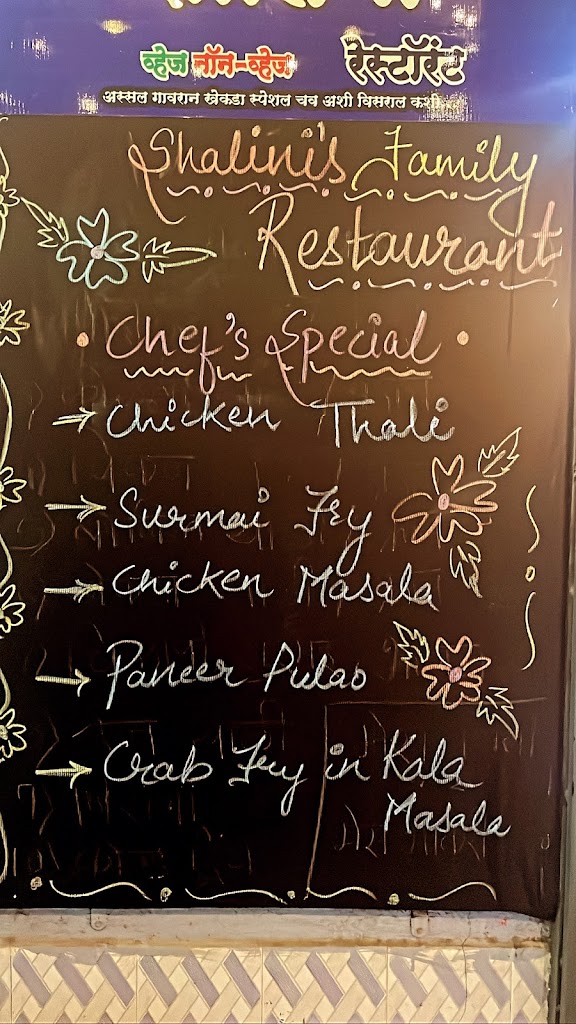 व्हेज नॉन-व्हेज रेस्टॉरंट
अस्सल गावरान खेकडा स्पेशल चव अशी विसराल कशी...
Shalini's Family
Restaurant
Chef's Special
→ Chicken Thali
→ Surmai Fry
→ Chicken Masala
→ Paneer Pulao
→ Crab Fry in Kala
Masala